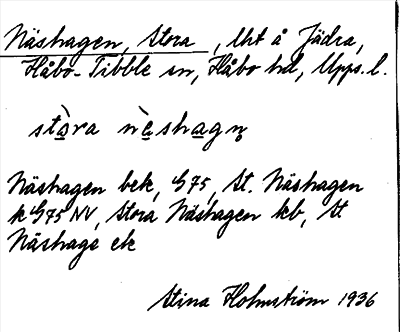 Näshagen, Stora, Uht å Jädra,
Håbo-Tibble sn, Håbo hd, Upps. l.
stòra nèshagn̥
Näshagen bek, G75, St. Näshagen
k G75 NV, Stora Näshagen kb, St
Näshage ek
Stina Holmström 1936